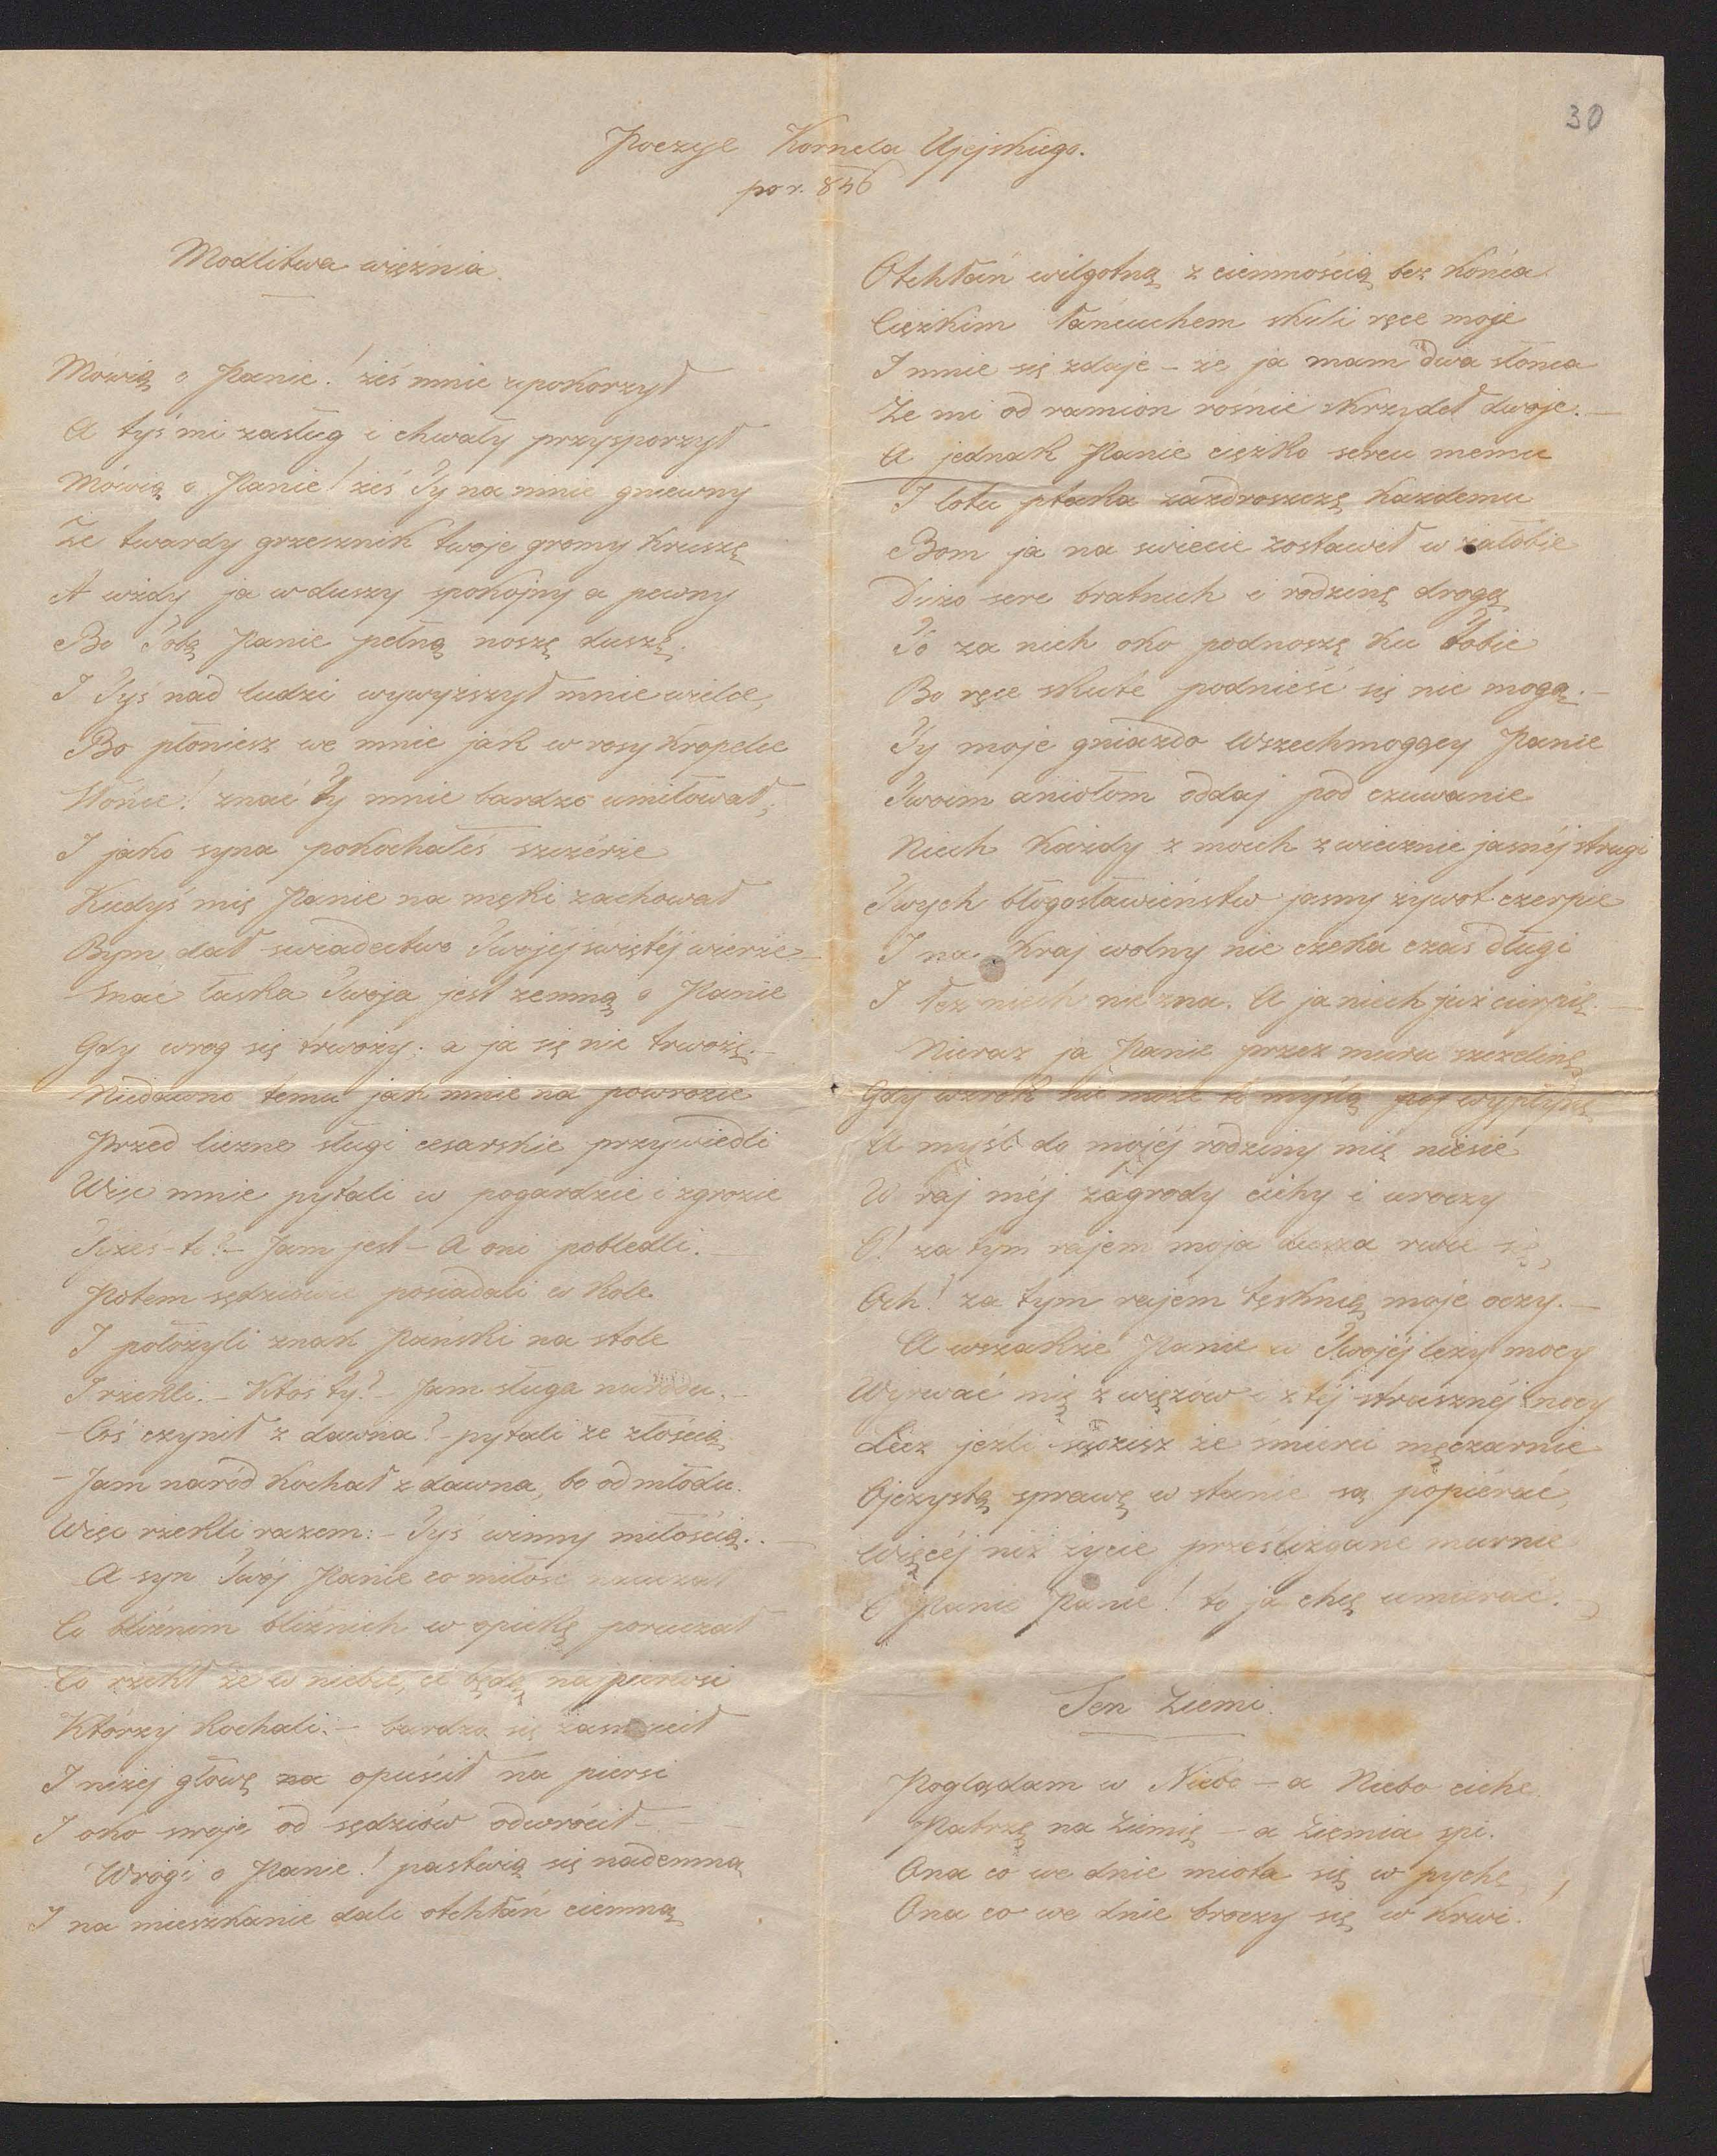 30
Poezye Kornela Ujejskiego.
po r. 846
Modlitwa więźnia.
Mówią o Panie! żeś mnie upokorzył
A tyś mi zasług i chwały przysporzył
Mówią o Panie! żeś Ty na mnie gniewny
Że twardy grzesznik twoje gromy kruszę
A wżdy ja w duszy spokojny a pewny
Bo Tobą Panie pełną noszę duszę.
I Tyś nad ludzi wywyższył mnie wielce,
Bo płoniesz we mnie jak w rosy kropelce
Słońce! znać Ty mnie bardzo umiłował;
I jako syna pokochałeś szczérze
Kiedyś mię Panie na męki zachował
Bym dał swiadectwo Twojéj świętéj wierze.—
Znać łaska Twoja jest zemną o Panie
Gdy wrog się trwoży; a ja się nie trwożę.—
Niedawno temu jak mnie na powrozie
Przed liczne sługi cesarskie przywiedli
Więc mnie pytali w pogardzie i zgrozie
Tyżeś-to?— Jam jest — A oni pobledli.—
Potem sędziowie posiadali w kole
I położyli znak Pański na stole
I rzekli.— Ktoś ty?— Jam sługa narodu.—
— Coś czynił z dawna?— pytali ze złością
— Jam naród kochał z dawna, bo od młodu.
Więc rzekli razem:— Tyś winny miłością..—
A syn Twój Panie co miłość nauczał
Co bliźnim bliźnich w opiekę poruczał
Co rzekł że w niebie, ci będą najpierwsi
Którzy kochali:— bardzo się zasmucił
I niżej głowę na opuścił na piersi
I oko swoje od sędziów odwrócił—
Wrogi o Panie! pastwią się nademną
I na mieszkanie dali otchłań ciemną
Otchłań wilgotną z ciemnością bez końca
Ciężkim łańcuchem skuli ręce moje
I mnie się zdaje — że ja mam dwa słońca
Że mi od ramion rośnie skrzydeł dwoje.—
A jednak Panie ciężko sercu memu
I lotu ptaka zazdroszczę każdemu
Bom ja na swiecie zostawił w żałobie
Dużo serc bratnich i rodzinę drogą
To za nich oko podnoszę ku Tobie
Bo ręce skute podnieść się nie mogą.—
Ty moje gniazdo Wszechmogący Panie
Twoim aniołom oddaj pod czuwanie
Niech każdy z moich z wiecznie jasnéj strugi
Twych błogosławieństw jasny żywot czerpie
I na kraj wolny nie czeka czas długi
I łez niech nie zna. A ja niech już cierpię.—
Nieraz ja Panie przez muru szczelinę
Gdy wzrok nie może to myślą wypłynę
A myśl do mojéj rodziny mię niesie
W raj méj zagrody cichy i uroczy
O! za tym rajem moja dusza rwie się,
Och! za tym rajem tęsknią moje oczy.—
A wszakże Panie w Twojéj leży mocy
Wyrwać mię z więzów i z téj strasznéj nocy
Lecz jeźli sądzisz że śmierci męczarnie
Ojczystą sprawę w stanie są popiérać,
Więcéj niż życie prześlizgane marnie
O Panie Panie! to ja chcę umierać.—
Sen Ziemi.
Poglądam w Niebo — a Niebo ciche.
Patrzę na Ziemię — a Ziemia spi.
Ona co we dnie miota się w pychę,
Ona co we dnie broczy się w krwi.